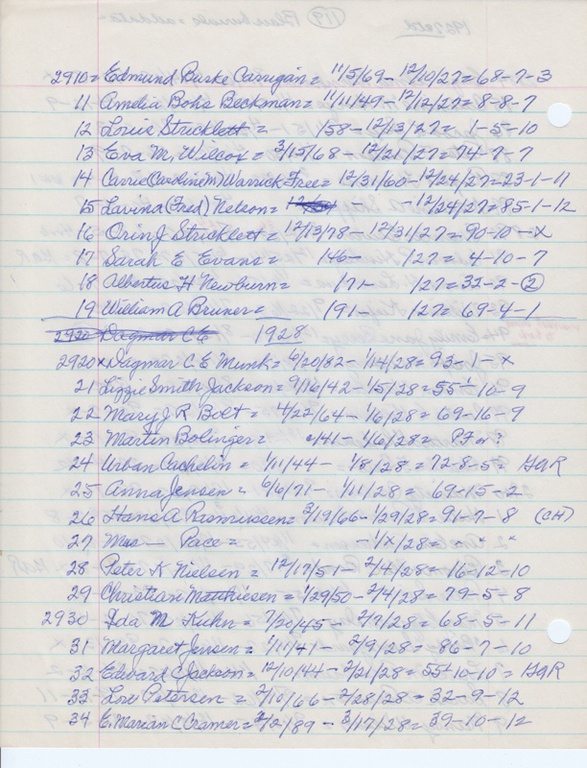 2910 = Edmund Burke Carrigan = 11/5/69 - 12/10/27 = 68-7-3
11 Amelia Bohs Beckman = 11/11/49 - 12/12/27 = 8-8-7
12 Louis Stricklett = /58 - 12/13/27 = 1-5-10
13 Eva M. Wilcox = 3/15/68 - 12/21/27 = 74-7-7
14 Carrie (Caroline M) Warrick Free = 12/31/60 - 12/24/27 = 23-1-11
15 Lavina (Fred) Nelson = - 12/24/27 = 85-1-12
16 Orin J Stricklett = 12/13/78 - 12/31/27 = 90-10-x
17 Sarah E Evans = 146 - /27 = 4-10-7
18 Albertus H Newburn = /71 - /27 = 32-2-②
19 William A Bruner = /91 - /27 = 69-4-1
2920 Dagmar C E 1928
2920 x Dagmar C. E Munk = 6/20/82 - 1/14/28 = 93-1-x
21 Lizzie Smith Jackson = 9/16/42 - 1/5/28 = 55½-10-9
22 Mary J R Bolt = 4/22/64 - 1/6/28 = 69-16-9
23 Martin Bolinger = /41 - 1/6/28 = P.F or ?
24 Urban Cachelin = 1/11/44 - 1/8/28 = 72-8-5 = GAR
25 Anna Jensen = 6/6/71 - 1/11/28 = 69-15-2
26 Hans A Rasmussen = 3/19/66 - 1/29/28 = 91-7-8 (CH)
27 Mrs — Pace = - 1/x/28 = " " "
28 Peter K Nielsen = 12/17/51 - 2/4/28 = 16-12-10
29 Christian Matthiesen = 1/29/50 - 2/4/28 = 79-5-8
2930 Ida M Kuhn = 7/20/45 - 2/7/28 = 68-5-11
31 Margaret Jensen = 1/11/41 - 2/9/28 = 86-7-10
32 Edward C Jackson = 12/10/44 - 2/21/28 = 55½-10-10 = GAR
33 Lori Petersen = 2/10/66 - 2/28/28 = 32-9-12
34 E. Marian C. Cramer = 2/2/89 - 3/17/28 = 39-10-12